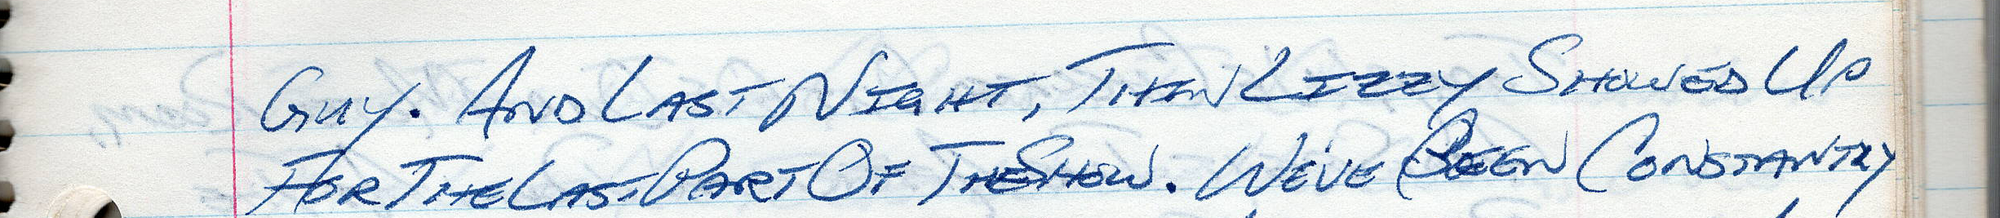 Guy. And Last Night, Thin Lizzy Showed Up
For The Last Part Of The Show. We've Been Constantly